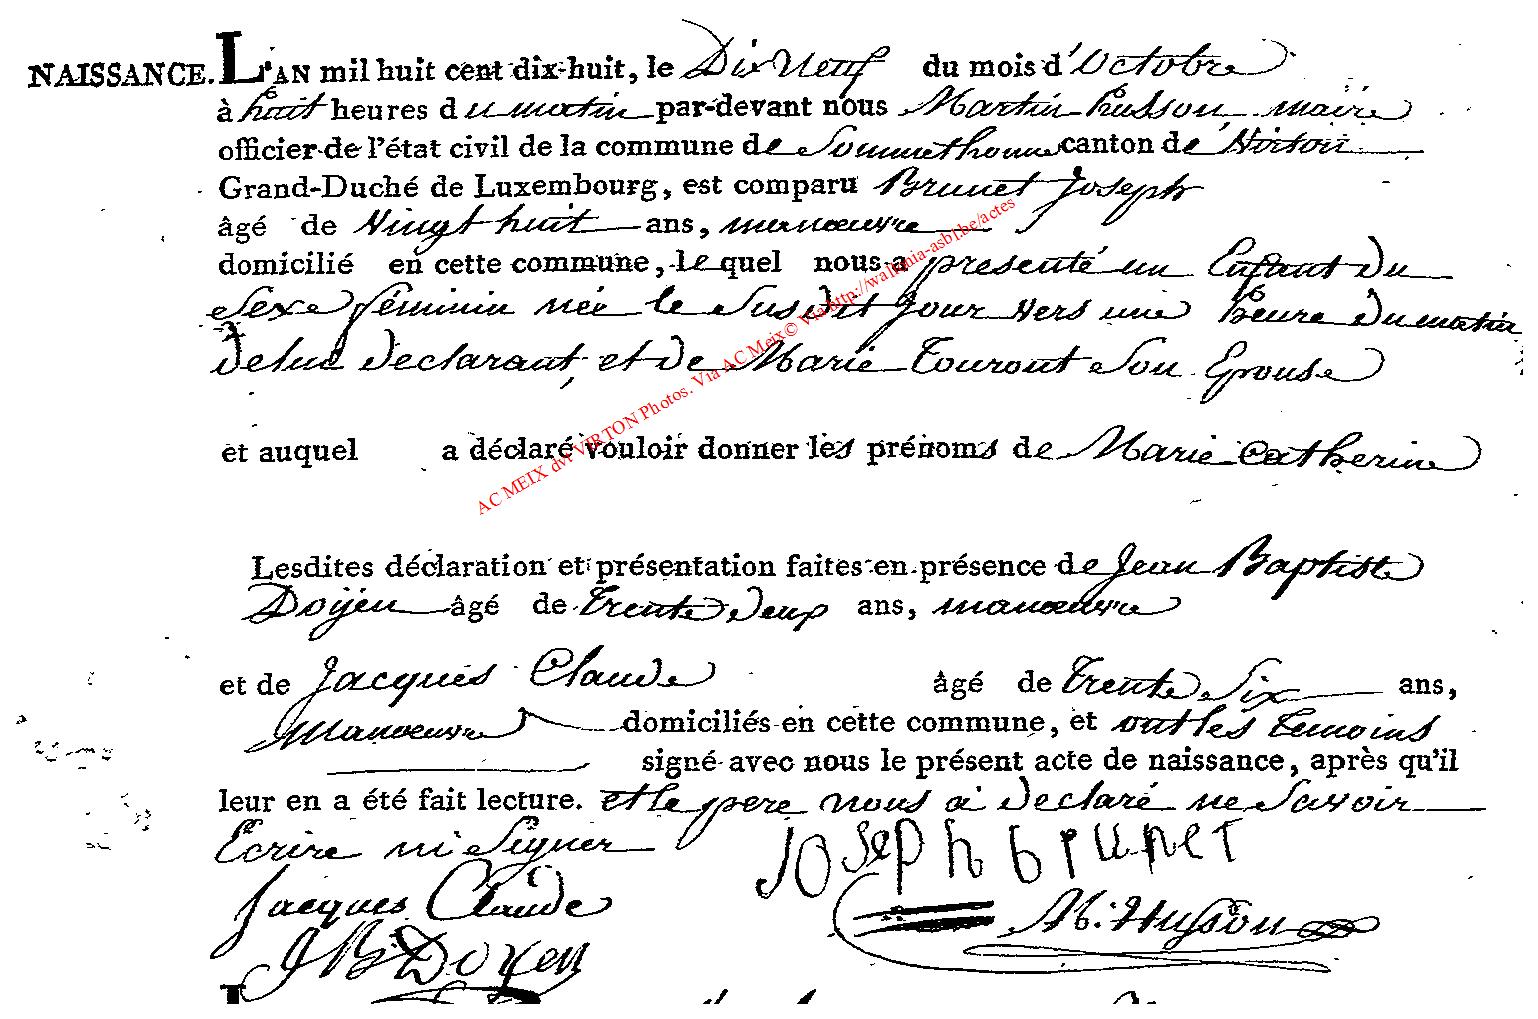 NAISSANCE. L'AN mil huit cent dix-huit, le Dix Neuf du mois d'Octobre
à huit heures du matin par-devant nous Martin husson maire
officier de l'état civil de la commune de Sommethonne canton de Virton
Grand-Duché de Luxembourg, est comparu Brunet Joseph
âgé de Vingt huit ans, manœuvre
domicilié en cette commune, lequel nous a presenté un Enfant du
Sexe féminin née le Susdit Jour vers une heure du matin
de lui declarant, et de Marie Touront Son Epouse
et auquel a déclaré vouloir donner les prénoms de Marie Catherine
Lesdites déclaration et présentation faites en présence de Jean Baptiste
Doijen âgé de trente deux ans, manœuvre
et de Jacques Claude âgé de trente Six ans,
Manœuvre domiciliés en cette commune, et ont les temoins
signé avec nous le présent acte de naissance, après qu'il
leur en a été fait lecture. et le pere nous a declaré ne Savoir
Ecrire ni Signer
Joseph brunet
Jacques Claude
M. Husson
JB Doyen
AC MEIX dvt VIRTON Photos. Via AC Meix© Via http://wallonia-asbl.be/actes